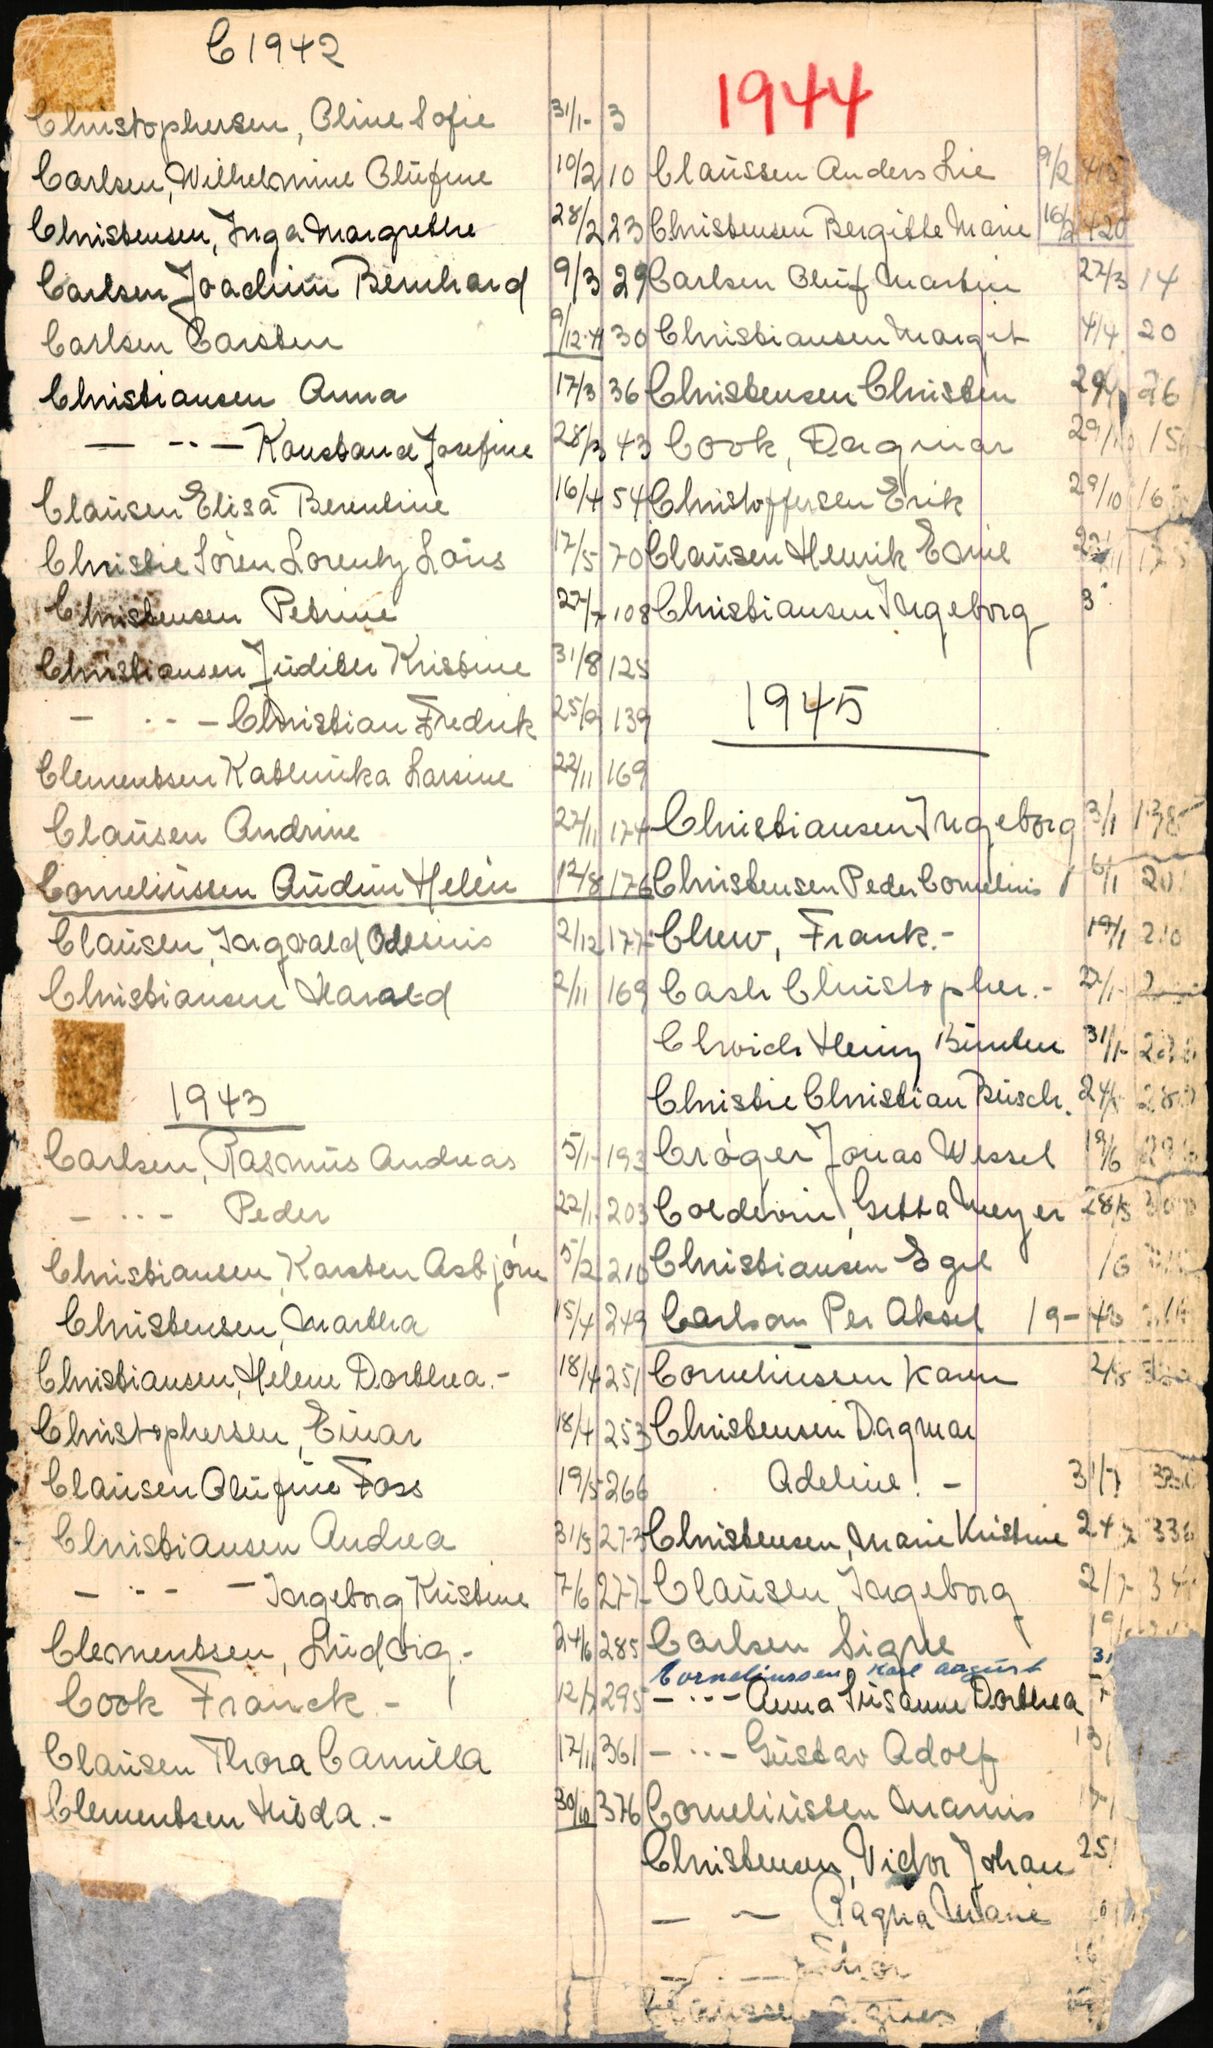 C 1942
Christophersen, Oline Sofie 31/1- 3
Carlsen, Wilhelmine Olüfine 10/2 10
Christensen, Inga Margrethe 28/2 23
Carlsen Joachim Bernhard 9/3 29
Carlsen Carsten 9/12-41 30
Christiansen Anna 17/3 36
— ·· — Konstance Josefine 28/3 43
Claüsen Elisa Berentine 16/4 54
Christie Sören Lorentz 17/5- 70
Christensen Petrine 27/7 108
Christiansen Jüdith Kristine 31/8 125
— ·· — Christian Fredrik 25/9 139
Clementsen Kathinka Larsine 22/11 169
Claüsen Andrine 27/11 174
Corneliüssen Aüdün Helén 12/8 176
Claüsen, Ingvald 2/12 177
Christiansen Harald 2/11 169
1943
Carlsen, Rasmüs Andreas 5/1- 193
— ·· — Peder 22/1- 203
Christiansen, Karsten Asbjörn 5/2 210
Christensen, Martha 15/4 249
Christiansen, Helene Dorthea.- 18/4 251
Christophersen, Einar 18/4 253
Claüsen Olüfine Foss 19/5 266
Christiansen Andrea 31/5 273
— ·· — Ingeborg Kristine 7/6 277
Clementsen, Lüdvig.- 24/6 285
Cook Franck - 12/7 295
Claüsen Thora Camilla 17/11 361
Clementsen Hilda.- 30/10 376
1944
Claüssen Anders Lie 9/2 415
Christensen Bergitte Marie 16/2 420
Carlsen Olüf Martin 27/3 14
Christiansen Margit 4/4 20
Christensen Christen 26
Cook, Dagmar 29/10
Christoffersen Erik 29/10
Claüsen Henrik
Christiansen Ingeborg 3
1945
Christiansen Ingeborg 3/1 198
Christensen Peder Cornelius 16/1 20
Chew, Frank.- 19/1 210
Cash Christopher.- 27/1-
31/1-
Christie Christian Büsch. 24/5
Cröger Jonas Wessel 19/6
Coldevin, Getta Meyer 28/5
Christiansen Egil /6
Carlson Per Aksel 19-43
Corneliüssen Karen 2/5
Christensen Dagmar
Adeline! - 31/7
Christensen, Marie Kristine 24/7 336
Claüsen, Ingeborg 2/7-
Carlsen Signe 19/
Corneliussen Karl August 31
— ·· — Anna Süsanne Dorthea
— ·· — Güstav Adolf 13/
Corneliüssen 17/
Christensen, Victor Johan 25/
— ~ Ragna Marie
— ·· — Thor 16
Agnes